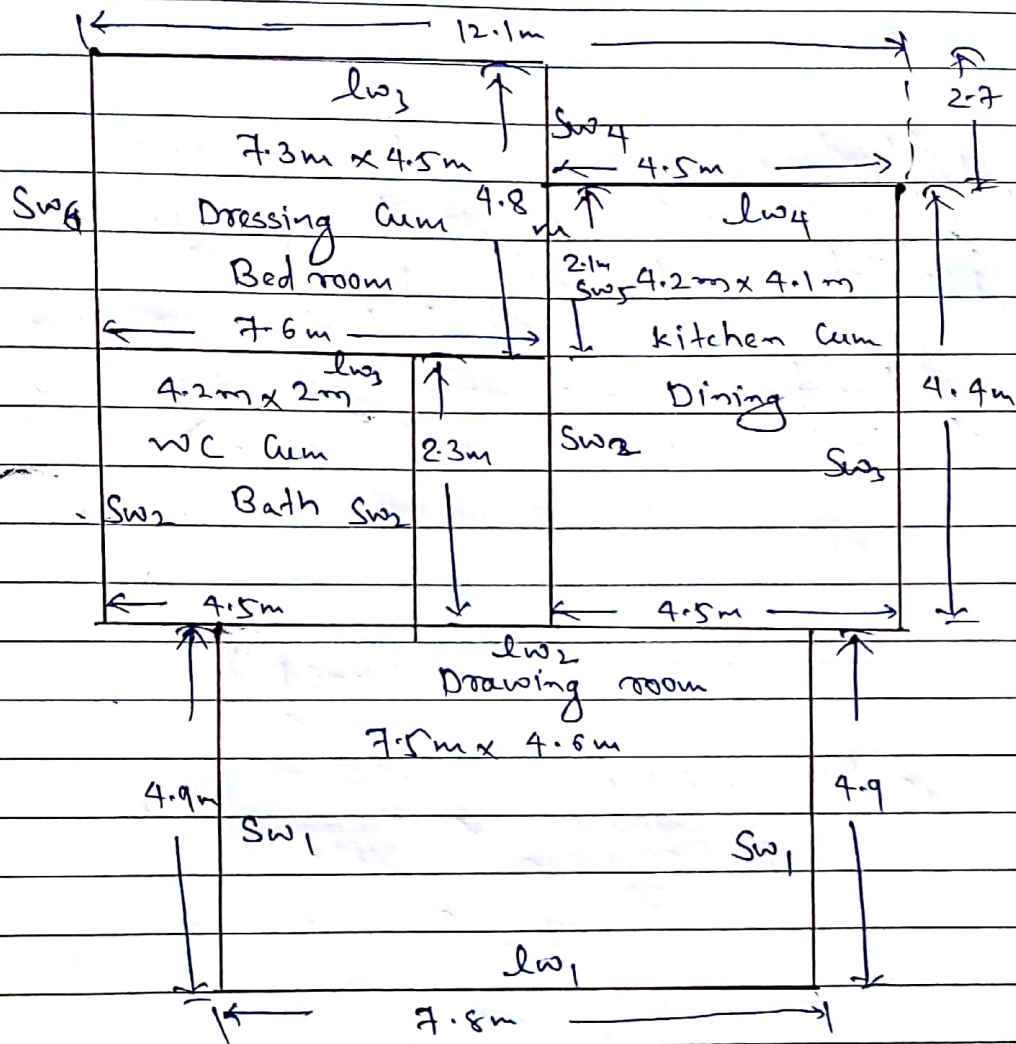 12.1m
2.7
lw3
Sw4
7.3m x 4.5m
4.5m
Sw6
Dressing Cum
4.8
m
lw4
Bed room
2.1m
Sw5
4.2m x 4.1m
7.6m
kitchen Cum
lw3
4.2m x 2m
Dining
4.4m
WC Cum
2.3m
Sw2
Sw3
Sw2
Bath
Sw2
4.5m
4.5m
lw2
Drawing room
7.5m x 4.6m
4.9m
4.9
Sw1
Sw1
lw1
7.8m